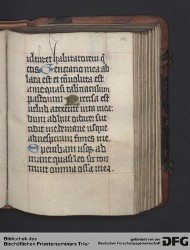 etis Generatio mea ab
lata est et conuoluta est
a me quasi
pastorum Precisa est ue
uita mea
dum adhuc ordirer suc
me de mane usque
ad uesperam finies me
Sperabam usque ad
mane quasi leo sic con
triuit omnia ossa mea
Bibliothek des
Bischöflichen Priesterseminars Trier
gefördert von der
Deutschen Forschungsgemeinschaft
DFG